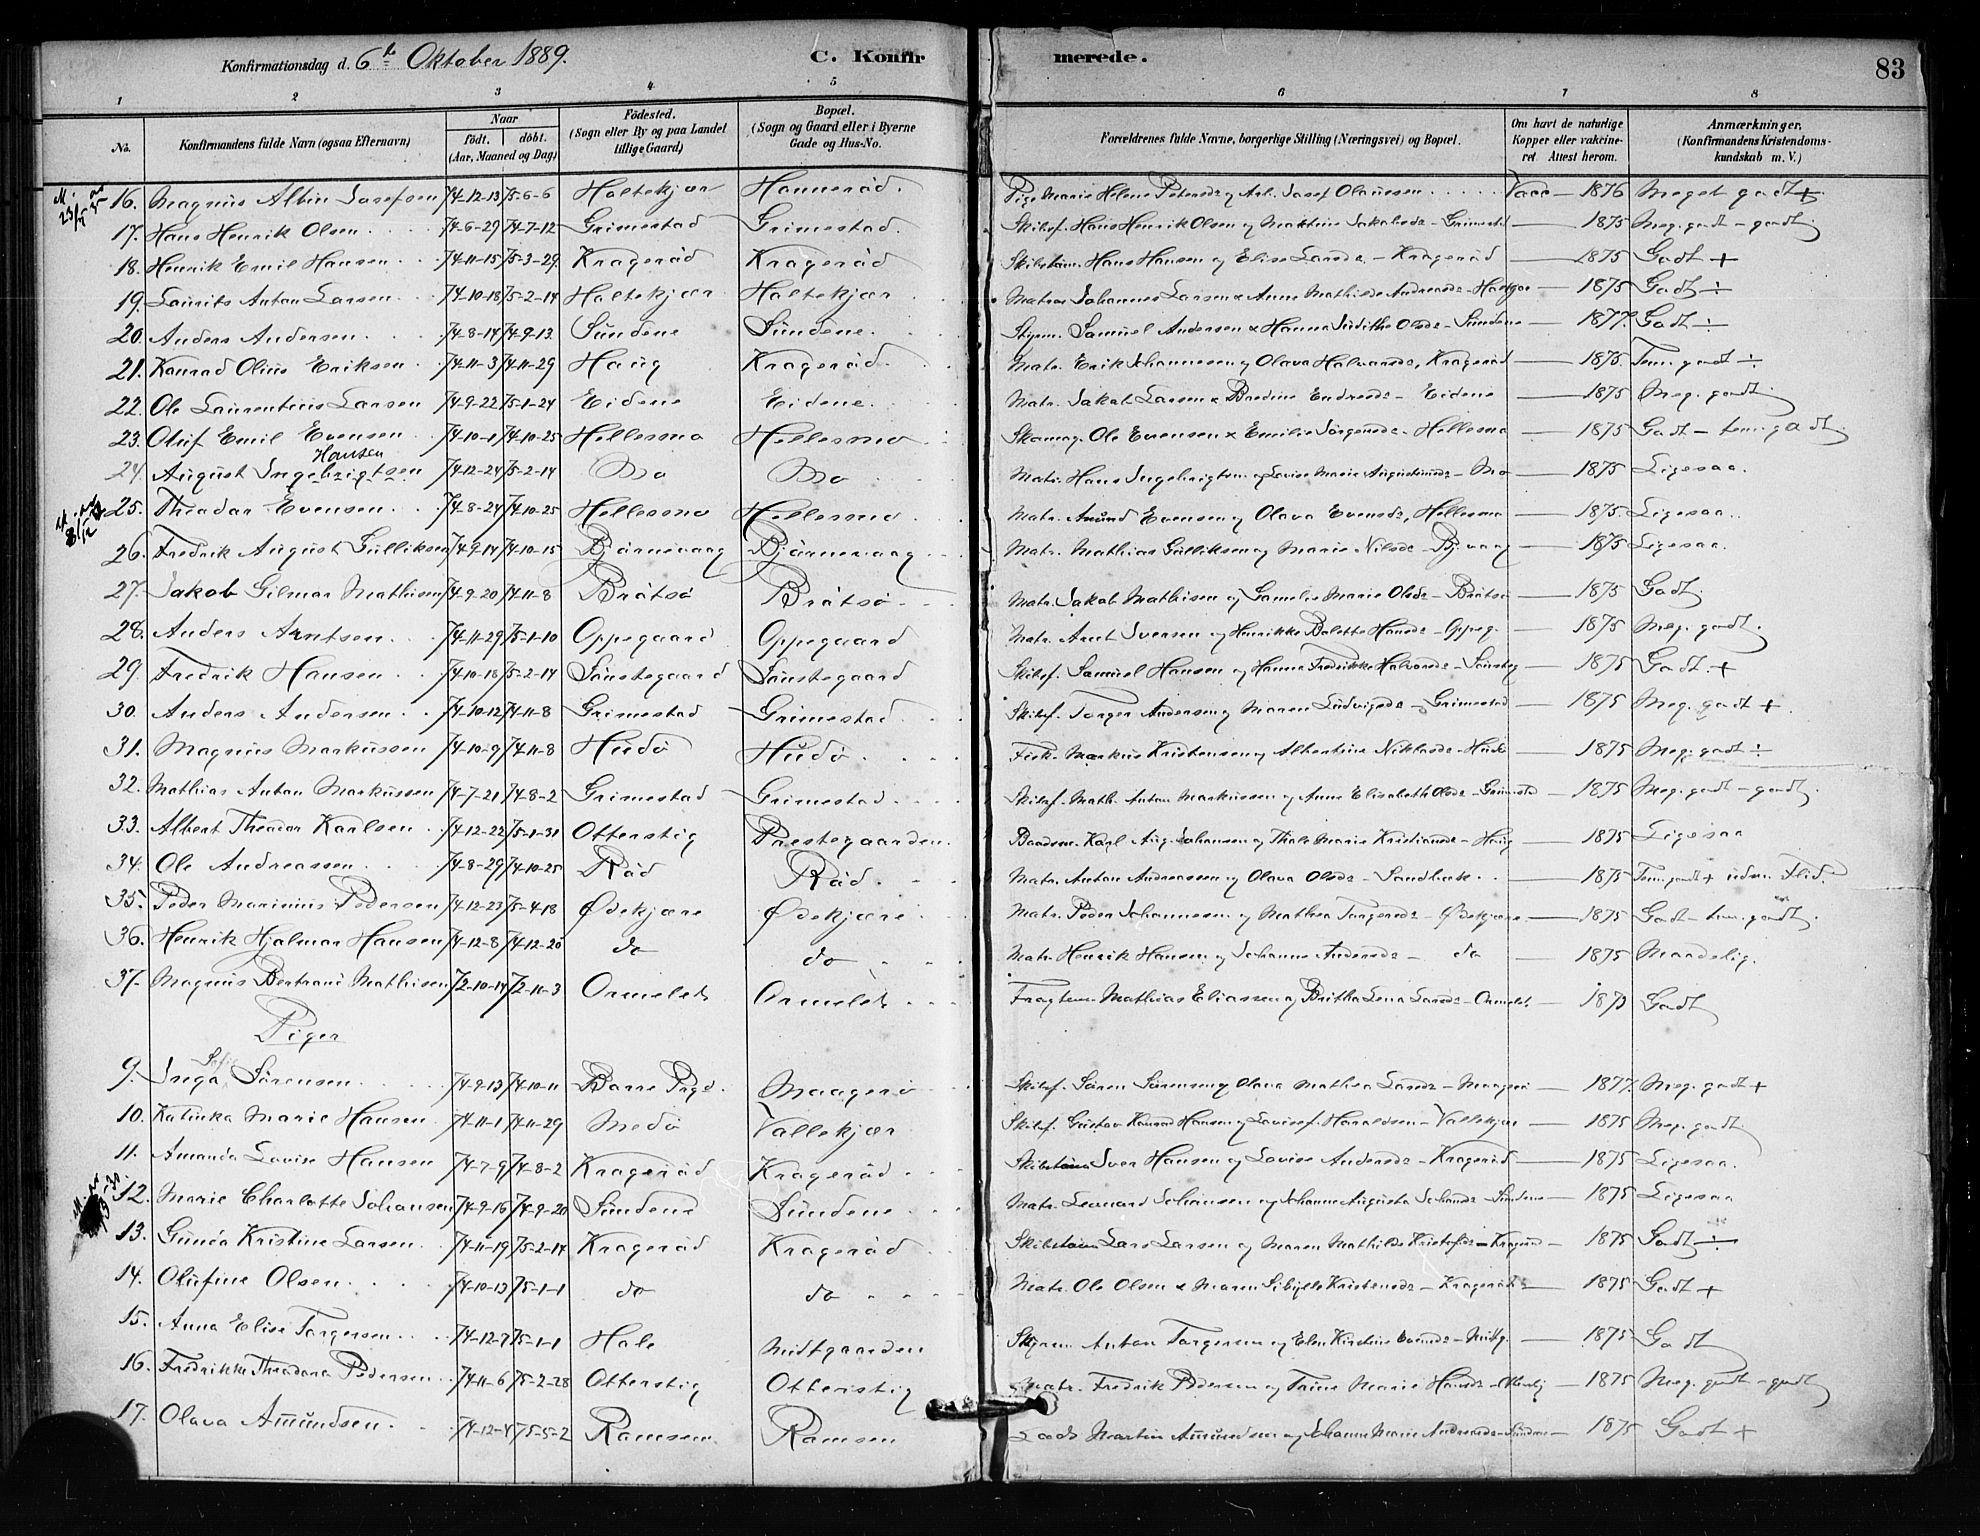 Konfirmationsdag d. 6te Oktober 1889. C. Konfir merede. 83
1 2 3 4 5 6 7 8
No. Konfirmandens fulde Navn (ogsaa Efternavn) Naar født. døbt. (Aar, Maaned og Dag) Fødested. (Sogn eller By og paa Landet tillige Gaard) Bopæl. (Sogn og Gaard eller i Byerne Gade og Hus-No. Forældrenes fulde Navne, borgerlige Stilling (Næringsvei) og Bopæl. Om havt de naturlige Kopper eller vakcineret. Attest herom. Anmærkninger. (Konfirmandens Kristendomskundskab m. V.)
16. Magnus Albin Josefsen 74-12-13 75-6-6 Holtekjær Hannerød. Pige Marie Helene Petersdr og Arb. Josef Olausen Vacc — 1876 Meget godt +
17. Hans Henrik Olsen 74-6-29 74-7-12 Grimestad Grimestad. Skibsf. Hans Henrik Olsen og Mathine Jakobsdr - Grimestd — 1875 Meg. godt - godt.
18. Henrik Emil Hansen 74-11-15 75-3-29 Kragerød Kragerød Skibstøm. Hans Hansen og Elise Larsdr - Kragerød — 1875 Godt +
19. Laurits Anton Larsen 74-10-18 75-2-14 Holtekjær Holtekjær Matros Johannes Larsen & Anne Mathilde Andreasdr — 1875 Godt ÷
20. Anders Andersen 74-8-14 74-9-13 Sundene Sundene. Styrm. Samuel Andersen & Hanna Judithe Olsdr - Sundene — 1877. Godt ÷
21. Konrad Olius Eriksen 74-11-3 74-11-29 Haug Kragerød Matr. Erik Johannessen og Olava Halvorsdr, Kragerød — 1875 Tem. godt ÷
22. Ole Laurentius Larsen 74-9-22 75-1-24 Eidene Eidene. Matr. Jakob Larsen & Bredine Endresdr - Eidene — 1875 Meg. godt
23. Oluf Emil Evensen 74-10-1 74-10-25 Hellesmo Hellesmo Ole Evensen & Emilie Jørgensdr - Hellesmo — 1875 Godt - tem. godt
Hansen
24. August Ingebrigtsen 74-12-24 75-2-14 Mo Mo Matr. Hans Ingebrigtsen og Lovise Marie Augustinusdr - Mo — 1875 Ligesaa.
25. Theodor Evensen 74-8-24 74-10-25 Hellesmo Hellesmo Matr. Amund Evensen og Olava Evensdr, Hellesmo — 1875 Ligesaa.
26. Fredrik August Gulliksen 74-9-14 74-10-15 Bjørnevaag Bjørnevaag Matr. Mathias Gulliksen og Marie Nilsdr - Bj.vaag — 1875 Ligesaa.
27. Jakob Gilmar Mathisen 74-9-20 74-11-8 Bråtsø Bråtsø Matr. Jakob Mathisen og Gamelie Marie Olsdr - Bråtsø — 1875 Godt.
28. Anders Arntsen 74-11-29 75-1-10 Oppegaard Oppegaard Matr. Arnt Iversen og Henrikke Bolette Hansdr - Oppeg. — 1875 Meg. godt.
29. Fredrik Hansen 74-10-18 75-2-14 Sønstegaard Sønstegaard Skibsf. Samuel Hansen og Hanna Fredrikke Halvorsdr - Sønsteg — 1875 Godt +
30. Anders Andersen 74-10-12 74-11-8 Grimestad Grimestad Skibsf. Torger Andersen og Maren Ludvigsdr - Grimestad — 1875 Meg. godt +
31. Magnus Markussen 74-10-9 74-11-8 Hudø Hudø Fisk. Markus Kristensen og Albertine Niklasdr - Hudø — 1875 Meg. godt ÷
32. Mathias Anton Markussen 74-7-21 74-8-2 Grimestad Grimestad Skibsf. Math. Anton Markussen og Anne Elisabeth Olsdr - Grimestd — 1875 Meg. godt - godt.
33. Albert Theodor Karlsen 74-12-22 75-1-31 Otterstig Præstegaarden. Baadsm. Karl Aug. Johansen og Thale Marie Kristiansdr - Haug 1875 Ligesaa
34. Ole Andreassen 74-8-29 74-10-25 Råd Råd. Matr. Anton Andreassen og Olava Olsdr - Sandbæk — 1875 Tem. godt + uden Flid.
35. Peder Marinius Pedersen 74-12-23 75-4-18 Ødekjære Ødekjære Matr. Peder Johannessen og Mathea Torgersdr - Ødekjære — 1875 Godt - tem. godt.
36. Henrik Hjalmar Hansen 74-12-8 74-12-20 do do Matr. Henrik Hansen og Johanne Andersdr - do — 1875 Maadelig.
37. Magnus Bertrand Mathisen 72-10-14 72-11-3 Ormelet Ormelet Mathias Eliassen og Britha Lena Larsdr - Ormelet — 1873 Godt
Piger
Sofie
9. Inga Sørensen 74-9-13 74-10-11 Barre Prgd. Maagerø Skibsf. Søren Sørensen og Olava Mathea Larsdr - Maagerø — 1877. Meg. godt +
10. Katinka Marie Hansen 74-11-1 74-11-29 Medø Vallekjær Skibsf. Gustav Konrad Hansen og Lovise Haraldsen - Vallekjær — 1875 Meg. godt
11. Amanda Lovise Hansen 74-7-9 74-8-2 Kragerød Kragerød Skibstøm Iver Hansen og Lovise Andersdr - Kragerød — 1875 Ligesaa.
12. Marie Charlotte Johansen 74-9-16 74-9-20 Sundene Sundene Matr. Leonard Johansen og Johanne Augusta - Sundene — 1875 Ligesaa
13. Gunda Kristine Larsen 74-11-19 75-2-14 Kragerød Kragerød Skibstøm Lars Larsen og Maren Mathilde Kristofdr - Kragerød — 1875 Godt ÷
14. Olufine Olsen 74-10-13 75-1-1 do do Matr. Ole Olsen & Maren Sibylle Kristensdr - Kragerød — 1875 Godt +
15. Anna Elise Torgersen 74-12-7 75-1-1 Hole Midtgaarden Styrm. Anton Torgersen og Elen Kirstine - Midtg. — 1875 Godt
16. Fredrikke Theodora Pedersen 74-11-6 75-2-28 Otterstig Otterstig Matr. Fredrik Pedersen og Trine Marie Hansdr - Otterstig — 1875 Meg. godt - godt
17. Olava Amundsen 74-12-4 75-5-2 Ramsen Ramsen Lods Martin Amundsen og Johanne Marie Andreasdr - Sundene — 1875 Godt +